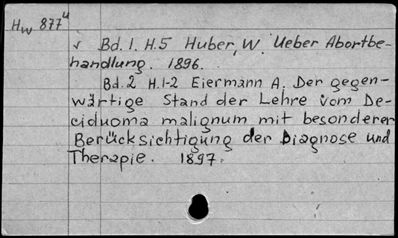 Hw 877u
✓ Bd. 1. H.5 Huber, W. Ueber Abortbe-
handlung. 1896.
Bd. 2 H.1-2 Eiermann A. Der gegen-
wärtige Stand der Lehre vom De-
ciduoma malignum mit besonderer
Berücksichtigung der Diagnose und
Therapie. 1897.